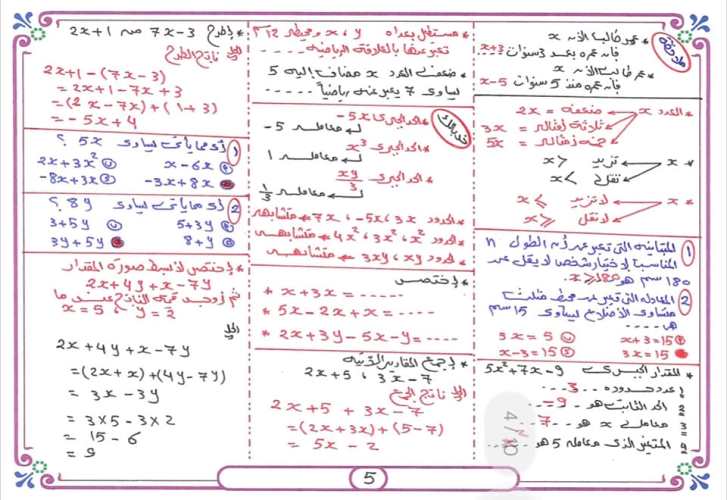 ملاحظة
* عمر طالب الآن x
فإن عمره بعد 3 سنوات x+3
* عمر طالب الآن x
فإن عمره منذ 5 سنوات x-5
* العدد x
ضعفه = 2x
ثلاثة أمثاله = 3x
خمسة أمثاله = 5x
* x
تزيد x>
تقل x<
* x
لا تزيد x≤
لا تقل x≥
1 المتباينة التى تعبر عن أن الطول n
المناسب لاختيار شخص لا يقل عن
180 سم هو
2 المعادلة التى تعبر عن محيط مثلث
متساوى الأضلاع ليساوى 15 سم
هى ....
x+3=15
3x=5
3x=15
x-3=15
* المقدار الجبرى 5x²+7x-9
1 عدد حدوده ..3..
2 الحد الثابت هو -9
3 معامل x هو ..7..
4 المتغير الذى معامله 5 هو
* مستطيل بعداه x، y ومحيطه 12
تعبر عنها بالعلاقة الرياضية ....
* ضعف العدد x مضاف إليه 5
ليساوى 7 يعبر عنه رياضياً ....
خد بالك
* الحد الجبرى -5x
معامله -5
* الحد الجبرى x³
معامله 1
* الحد الجبرى xy/3
معامله 1/3
* الحدود 3x، -5x، 7x متشابهة
* الحدود x²، 3x²، 4x² متشابهة
* الحدود xy، 3xy متشابهة
* اختصر
* x+3x=.....
* 5x-2x+x=.....
* 2x+3y-5x-y=.....
* اجمع المقادير الآتية
2x+5 ، 3x-7
الحل ناتج الجمع
2x+5+3x-7
=(2x+3x)+(5-7)
= 5x-2
* اطرح 7x-3 من 2x+1
الحل ناتج الطرح
2x+1-(7x-3)
=2x+1-7x+3
=(2x-7x)+(1+3)
=-5x+4
1 أى مما يأتى يساوى 5x ؟
x-6x
2x+3x²
-3x+8x
-8x+3x
2 أى مما يأتى يساوى 8y ؟
5+3y
3+5y
8+y
3y+5y
* اختصر لأبسط صورة المقدار
2x+4y+x-7y
ثم أوجد قيمة الناتج عندما
x=5 ، y=2
الحل
2x+4y+x-7y
=(2x+x)+(4y-7y)
=3x-3y
=3×5-3×2
=15-6
=9
5